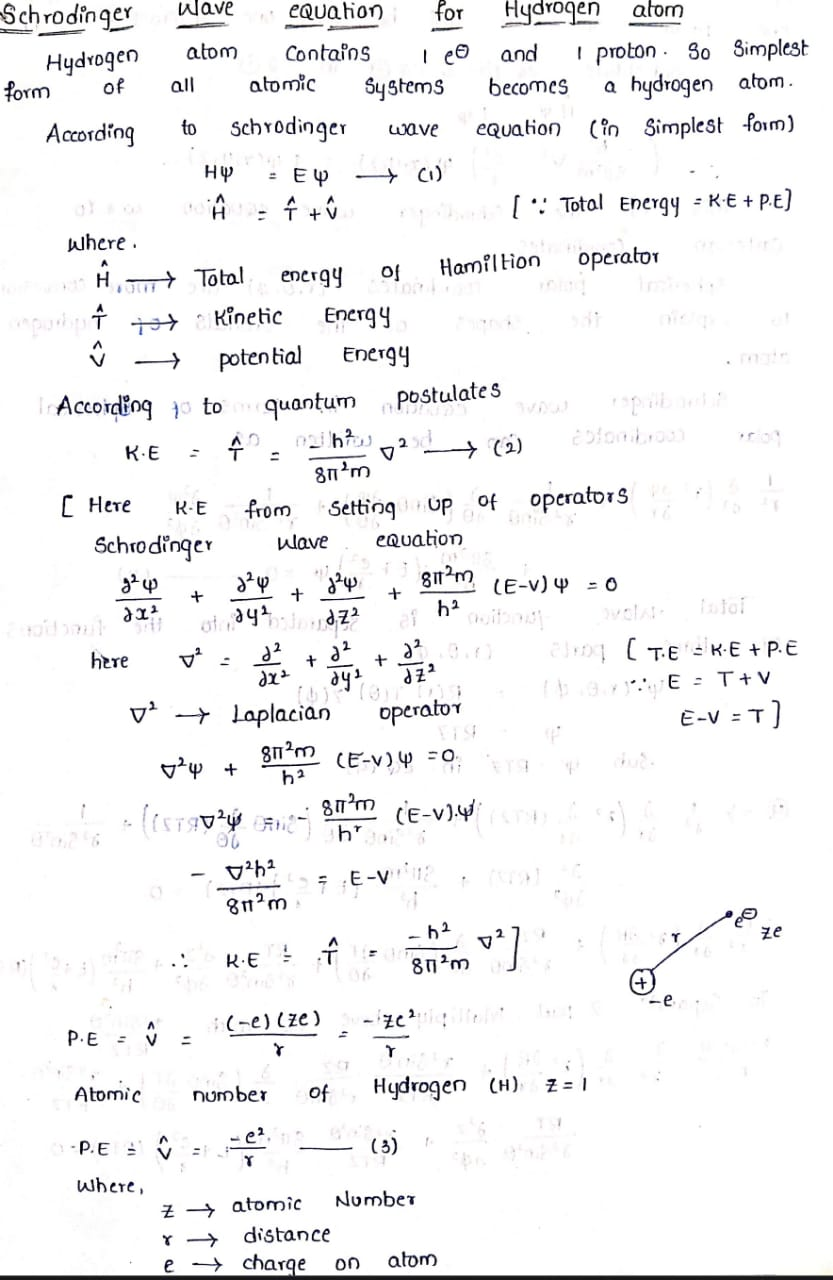 Schrodinger wave equation for Hydrogen atom
Hydrogen atom contains 1 e⊖ and 1 proton. So Simplest
form of all atomic Systems becomes a hydrogen atom.
According to schrodinger wave equation (in Simplest form)
HΨ = EΨ ⟶ (1)
Ĥ = T̂ + V̂ [∵ Total Energy = K.E + P.E]
Where.
Ĥ ⟶ Total energy of Hamiltion operator
T̂ ⟶ Kinetic Energy
V̂ ⟶ potential Energy
According to quantum postulates
K.E = T̂ = -h²/8π²m ∇² ⟶ (2)
[ Here K.E from Setting up of operators
Schrodinger Wave equation
∂²Ψ/∂x² + ∂²Ψ/∂y² + ∂²Ψ/∂z² + 8π²m/h² (E-V) Ψ = 0
here ∇² = ∂²/∂x² + ∂²/∂y² + ∂²/∂z² [ T.E = K.E + P.E
∴ E = T + V
∇² ⟶ Laplacian operator
E-V = T ]
∇²Ψ + 8π²m/h² (E-V) Ψ = 0
∇²Ψ = - 8π²m/h² (E-V).Ψ
- ∇²h²/8π²m = E-V
∴ K.E = T̂ = -h²/8π²m ∇² ]
e⊖ ze
r
⊕ -e
P.E = V̂ = (-e)(ze)/r = -ze²/r
Atomic number of Hydrogen (H) Z = 1
P.E = V̂ = -e²/r —— (3)
Where,
Z ⟶ atomic Number
r ⟶ distance
e ⟶ charge on atom